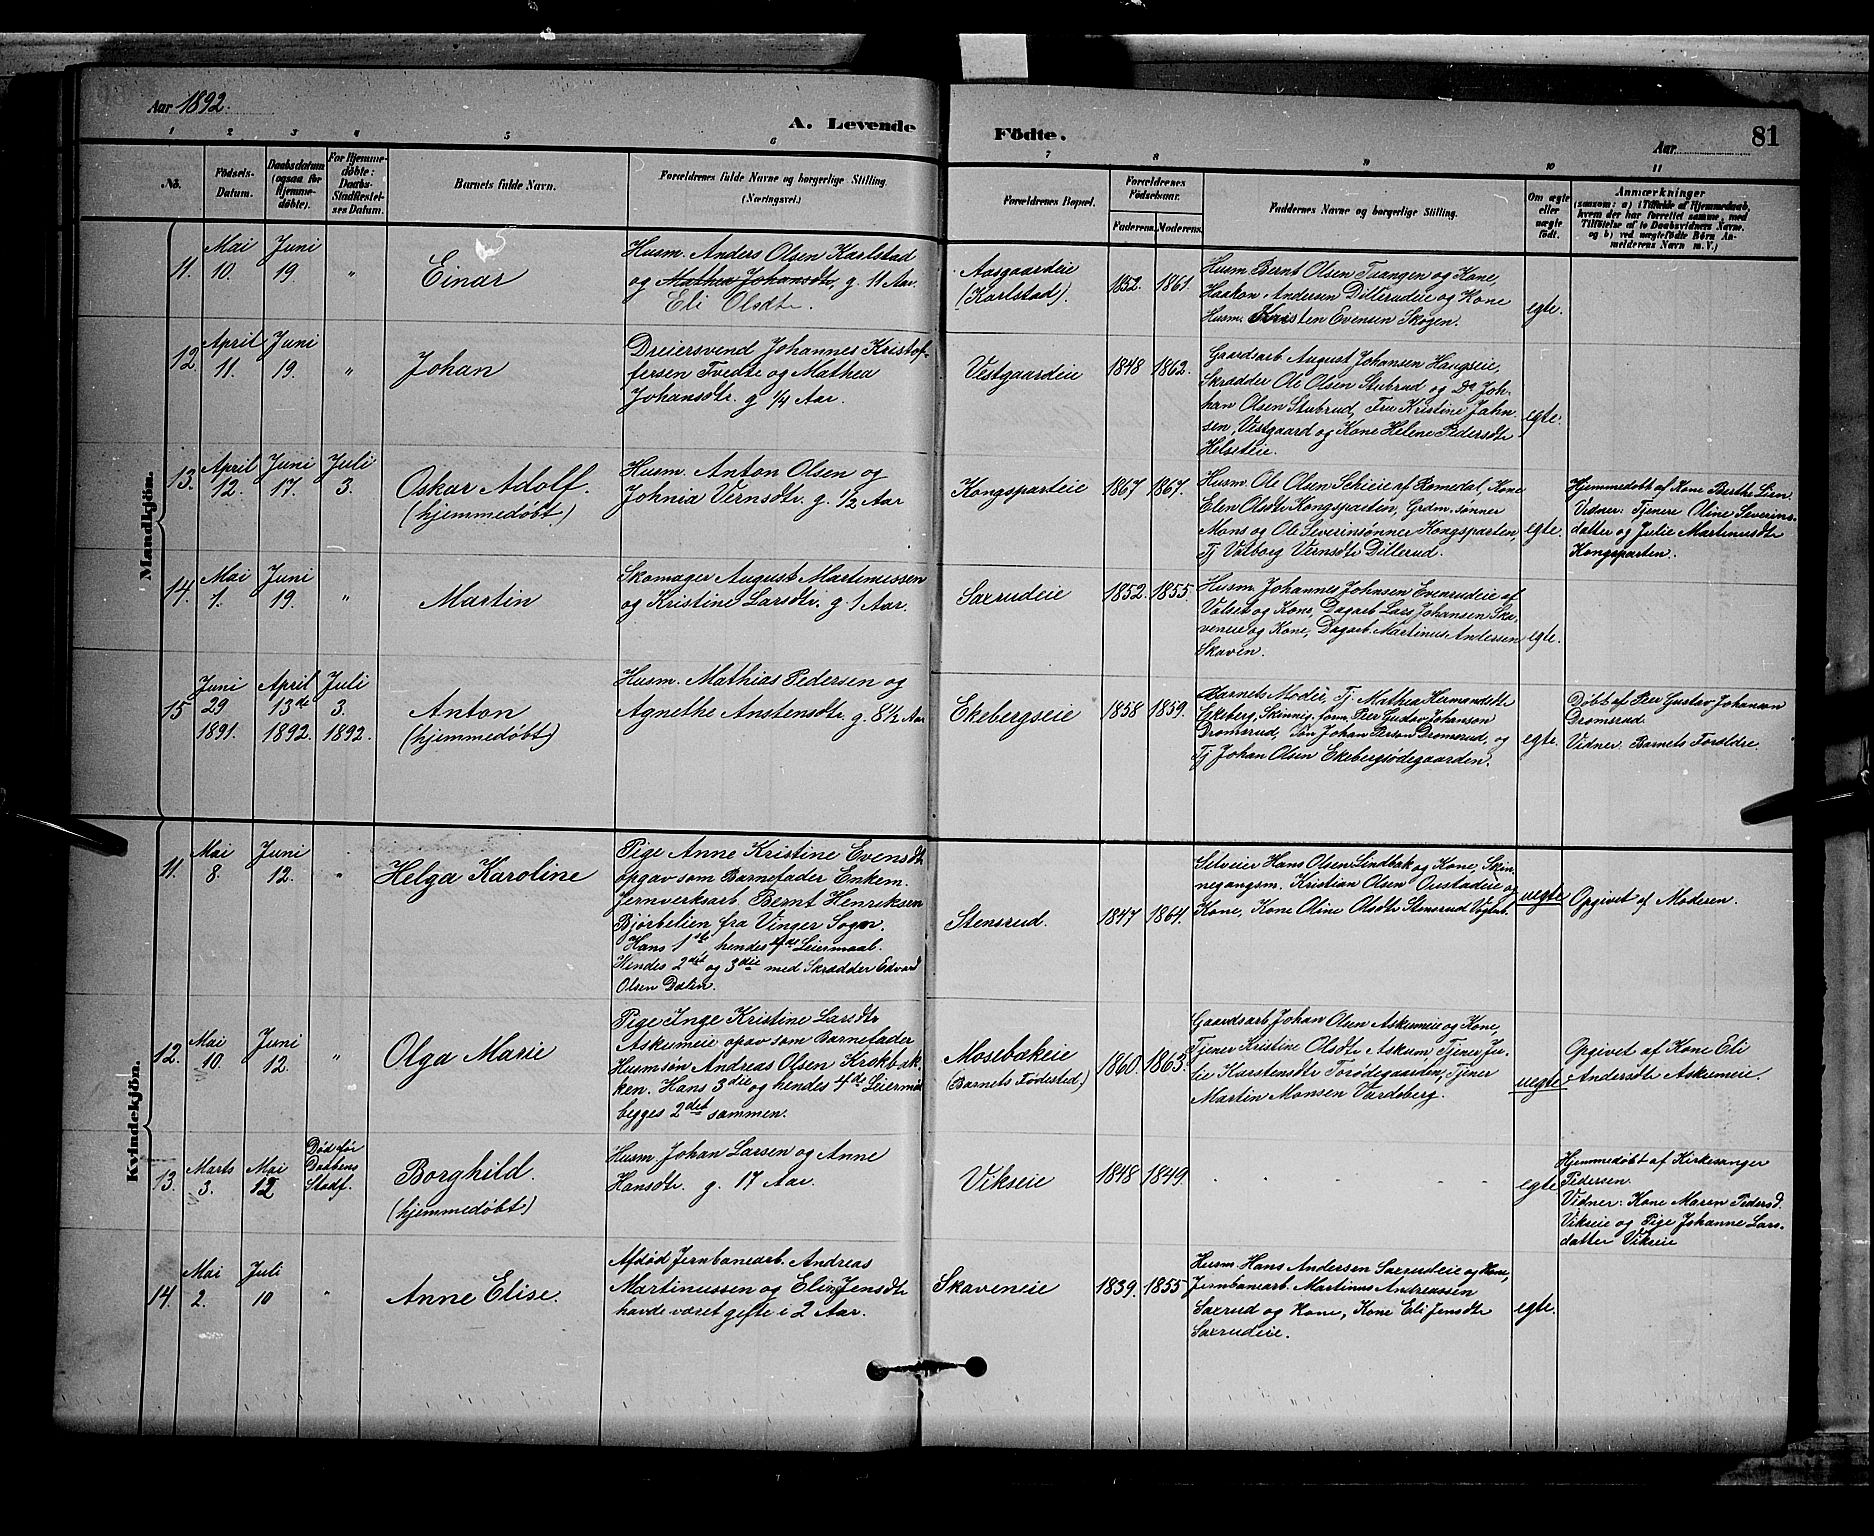 Aar 1892.
A. Levende Födte.
Aar
81
1 2 3 4 5 6 7 8 9 10 11
No.
Födsels-
Datum.
Daabsdatum
(ogsaa for
Hjemme-
döbte).
For Hjemme-
döbte:
Daabs-
Stadfæstel-
ses Datum.
Barnets fulde Navn.
Forældrenes fulde Navne og borgerlige Stilling.
(Næringsvei.)
Forældrenes Bopæl.
Forældrenes
Födselsaar.
Faderens. Moderens.
Faddernes Navne og borgerlige Stilling.
Om ægte
eller
uægte
födt.
Anmærkninger
(saasom: a) i Tilfælde af Hjemmedaab,
hvem der har forrettet samme, med
Tilföielse af to Daabsvidners Navne,
og b) ved uægtefödte Börn An-
melderens Navn m. V.)
Mandkjön.
11. Mai 10. Juni 19. " Einar
Husm. Anders Olsen Karlstad
og Mathea Johansdtr. g. 11 Aar.
Eli Olsdtr.
Aasgaardeie
(Karlstad).
1852. 1861.
Husm. Bernt Olsen Tsangen og Kone,
Haakon Andersen Dillerudeie og Kone
Husm. Kristen Evensen Skogen.
egte.
12. April 11. Juni 19. " Johan
Dreiersvend Johannes Kristof-
fersen Tvedte og Mathea
Johansdtr. g. 1/4 Aar.
Vestgaardeie
1848 1862.
Gaardsarb. August Johansen Haugseie,
Skrædder Ole Olsen Stubrud og Do Jo-
han Olsen Stubrud, Fru Kristine Jahn-
sen, Vestgaard og Kone Helene Pedersdtr
Helseteie.
egte.
13. April 12. Juni 17. Juli 3. Oskar Adolf.
(hjemmedøbt)
Husm. Anton Olsen og
Johnia Vernsdtr. g. 1/2 Aar
Kongsparteie
1867 1867.
Husm. Ole Olsen Schieie af Romedal, Kone
Elen Olsdtr Kongsparten, Grdm. sønner
Mons og Ole Severinsønner Kongsparten,
Tj Valborg Vernsdtr Dillerud.
egte.
Hjemmedøbt af Kone Berthe Lien.
Vidner: Tjenere Oline Severins-
datter og Julie Martinusdtr
Kongsparten.
14. Mai 1. Juni 19. " Martin
Skomager August Martinussen
og Kristine Larsdtr. g 1 Aar.
Saxrudeie
1852. 1855.
Husm. Johannes Johnsen Evenrudeie af
Valset og Kone, Dagarb Lars Johansen Ska-
veneie og Kone, Dagarb. Martinus Andersen
Skaven.
egte.
15 Juni 29 1891. April 13de 1892. Juli 3. 1892. Anton
(hjemmedøbt)
Husm. Mathias Pedersen og
Agnethe Anstensdtr. g. 8 1/2 Aar
Ekebergseie
1858 1859.
Barnets Moder, Tj. Mathea Hermandsdtr
Ekeberg, Skinnig. form. Peer Gustav Johanson
Dromsrud, Søn Johan Person Dromsrud, og
Tj Johan Olsen Ekebergsødegaarden.
egte.
Døbt af Peer Gustav Johanson
Dromsrud.
Vidner: Barnets Forældre.
Kvindekjön.
11. Mai 8. Juni 12. " Helga Karoline
Pige Anne Kristine Evensdtr
opgav som Barnefader Enkem.
Jernverksarb. Bernt Henriksen
Bjørbelien fra Vinger Sogn.
Hans 1ste, hendes 4de Leiermaal.
Hendes 2det og 3die med Skrædder Edvard
Olsen Dalen.
Stensrud.
1847 1864.
Selveier Hans Olsen Lindbak og Kone, Skin-
negangsm. Kristian Olsen Oustadeie og
Kone, Kone Oline Olsdtr Stensrud
uegte
Opgivet af Moderen.
12. Mai 10. Juni 12. " Olga Marie
Pige Inge Kristine Larsdtr
Askumeie opgav som Barnefader
Husmsøn Andreas Olsen Krokbak-
ken. Hans 3die og hendes 4de Leiermaal
begges 2det sammen.
Mosebækeie
(Barnets Fødested.)
1860. 1865.
Gaardsarb. Johan Olsen Askumeie og Kone,
Tjener Kristine Olsdtr Askum, Tjener Ju-
lie Karstensdtr Torødegaarden, Tjener
Martin Monsen Vardsberg.
uegte
Opgivet af Kone Eli
Andersdtr Askumeie.
13. Marts 3. Mai 12 Død før
Daabens
Stadf. Borghild.
(hjemmedøbt)
Husm. Johan Larsen og Anne
Hansdtr. g. 17 Aar.
Vikseie
1848 1849.
egte
Hjemmedøbt af Kirkesanger
Pedersen.
Vidner: Kone Maren Pedersd.
Vikseie og Pige Johanne Lars-
datter Vikseie
14. Mai 2. Juli 10 " Anne Elise.
Afdød Jernbanearb. Andreas
Martinussen og Eline Jensdtr
havde været gifte i 2 Aar.
Skaveneie
1839. 1855
Husm. Hans Andersen Saxrudeie og Kone,
Jernbanearb. Martinus Andreassen
Saxrud og Kone, Kone Eli Jensdtr
Saxrudeie.
egte.